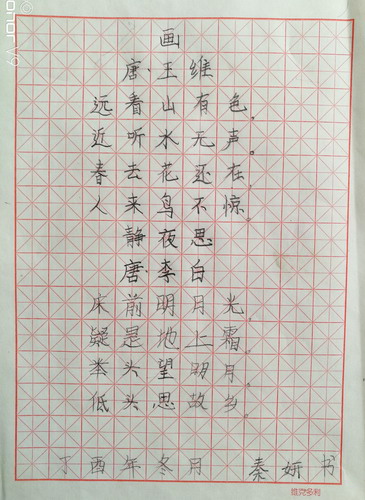 画
唐·王维
远看山有色。
近听水无声。
春去花还在,
人来鸟不惊。
静夜思
唐·李白
床前明月光。
疑是地上霜。
举头望明月。
低头思故乡。
丁酉年冬月 秦妍书
维克多利
honor V9